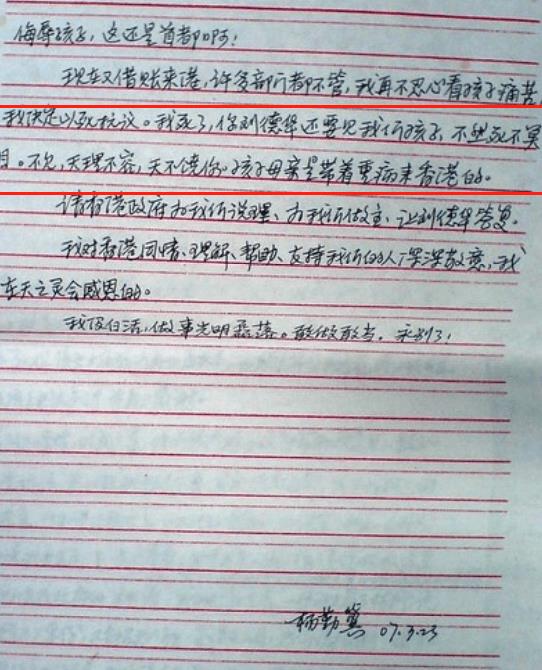 侮辱孩子，这还是首都啊！
现在又借账来港，许多部门都不管，我再不忍心看孩子痛苦，
我决定以死抗议。我死了，你刘德华还要见我们孩子，不然死不冥
目。不见，天理不容，天不饶你。孩子母亲是带着重病来香港的。
请香港政府为我们说理、为我们做主，让刘德华答复。
我对香港同情、理解、帮助、支持我们的人深深敬意，我
在天之灵会感恩的。
我没白活，做事光明磊落。敢做敢当。永别了！
杨勤冀 07.3.23